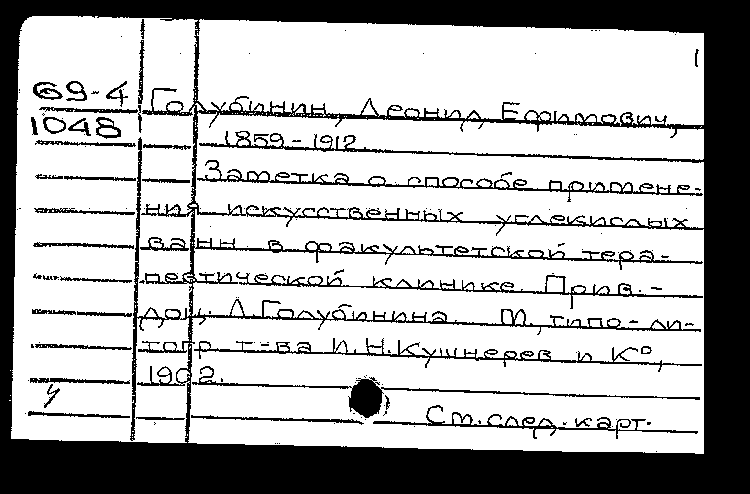 1
69-4 Голубинин, Леонид Ефимович,
1048 1859-1912.
Заметка о способе примене-
ния искусственных углекислых
ванн в факультетской тера-
певтической клинике. Прив.-
доц. Л.Голубинина. М., типо-ли-
тогр. т-ва И.Н.Кушнерев и К°,
1902.
Ст.след.карт.